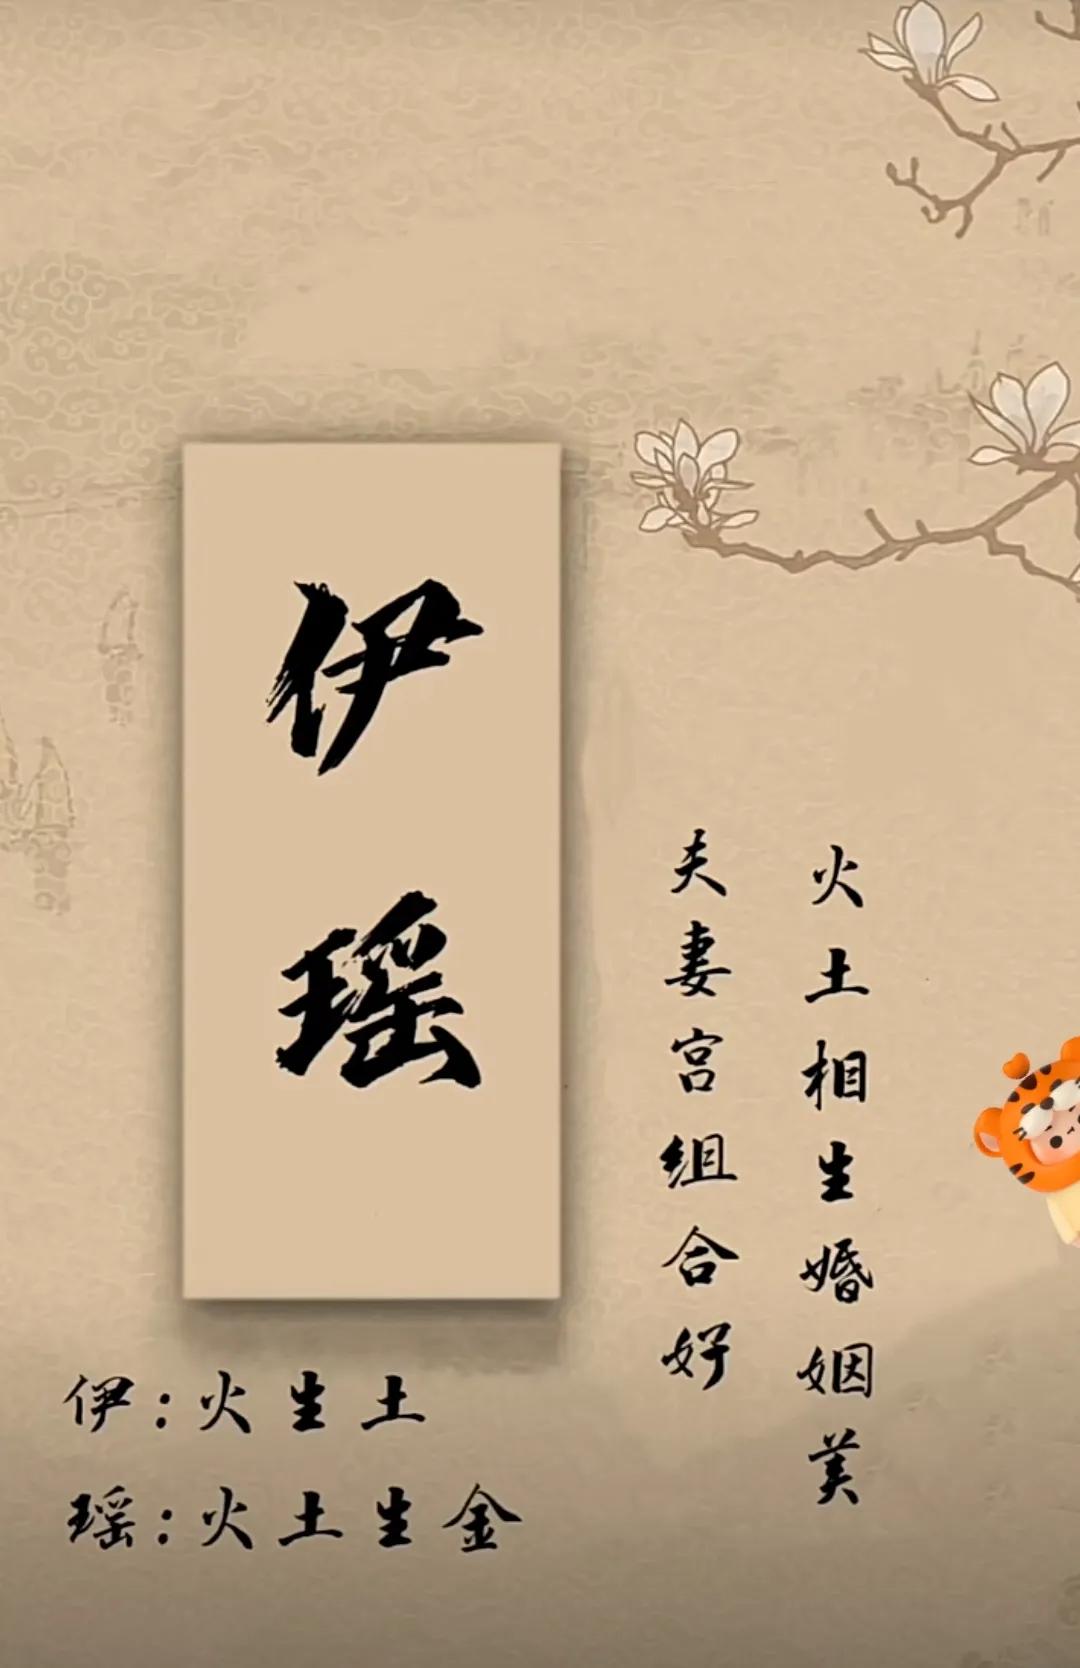 伊瑶
火土相生婚姻美
夫妻宫组合好
伊：火生土
瑶：火土生金